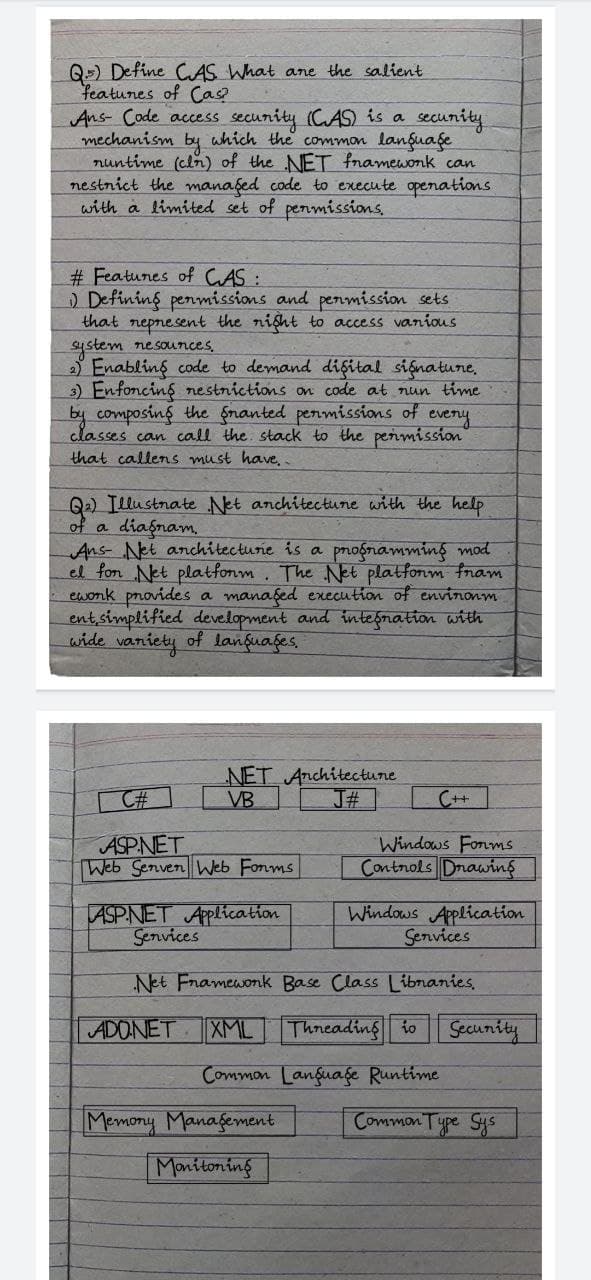 Q.5) Define CAS. What are the salient
features of Cas?
Ans- Code access security (CAS) is a security
mechanism by which the common language
runtime (clr) of the .NET framework can
restrict the managed code to execute operations
with a limited set of permissions.
# Features of CAS :
1) Defining permissions and permission sets
that represent the right to access various
system resources.
2) Enabling code to demand digital signature.
3) Enforcing restrictions on code at run time
by composing the granted permissions of every
classes can call the stack to the permission
that callers must have.
Q2) Illustrate .Net architecture with the help
of a diagram.
Ans- .Net architecture is a programming mod
el for .Net platform. The .Net platform fram
ework provides a managed execution of environm
ent, simplified development and integration with
wide variety of languages.
.NET Architecture
C# VB J# C++
ASP.NET Windows Forms
Web Server Web Forms Controls Drawing
ASP.NET Application Windows Application
Services Services
.Net Framework Base Class Libraries.
ADO.NET XML Threading io Security
Common Language Runtime
Memory Management Common Type Sys
Monitoring